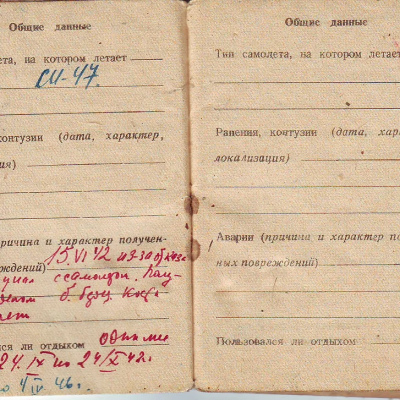 Общие данные
ета, на котором летает
СИ-47.
контузии (дата, характер,
ия)
ричина и характер получен-
15.VI 42 из-за отказа
еждений)
с самолета.
лся ли отдыхом
24.IX по 24/X 42г.
о 4/IV 46г.
Общие данные
Тип самолета, на котором летае
Ранения, контузии (дата, хара
локализация)
Аварии (причина и характер по
ных повреждений)
Пользовался ли отдыхом